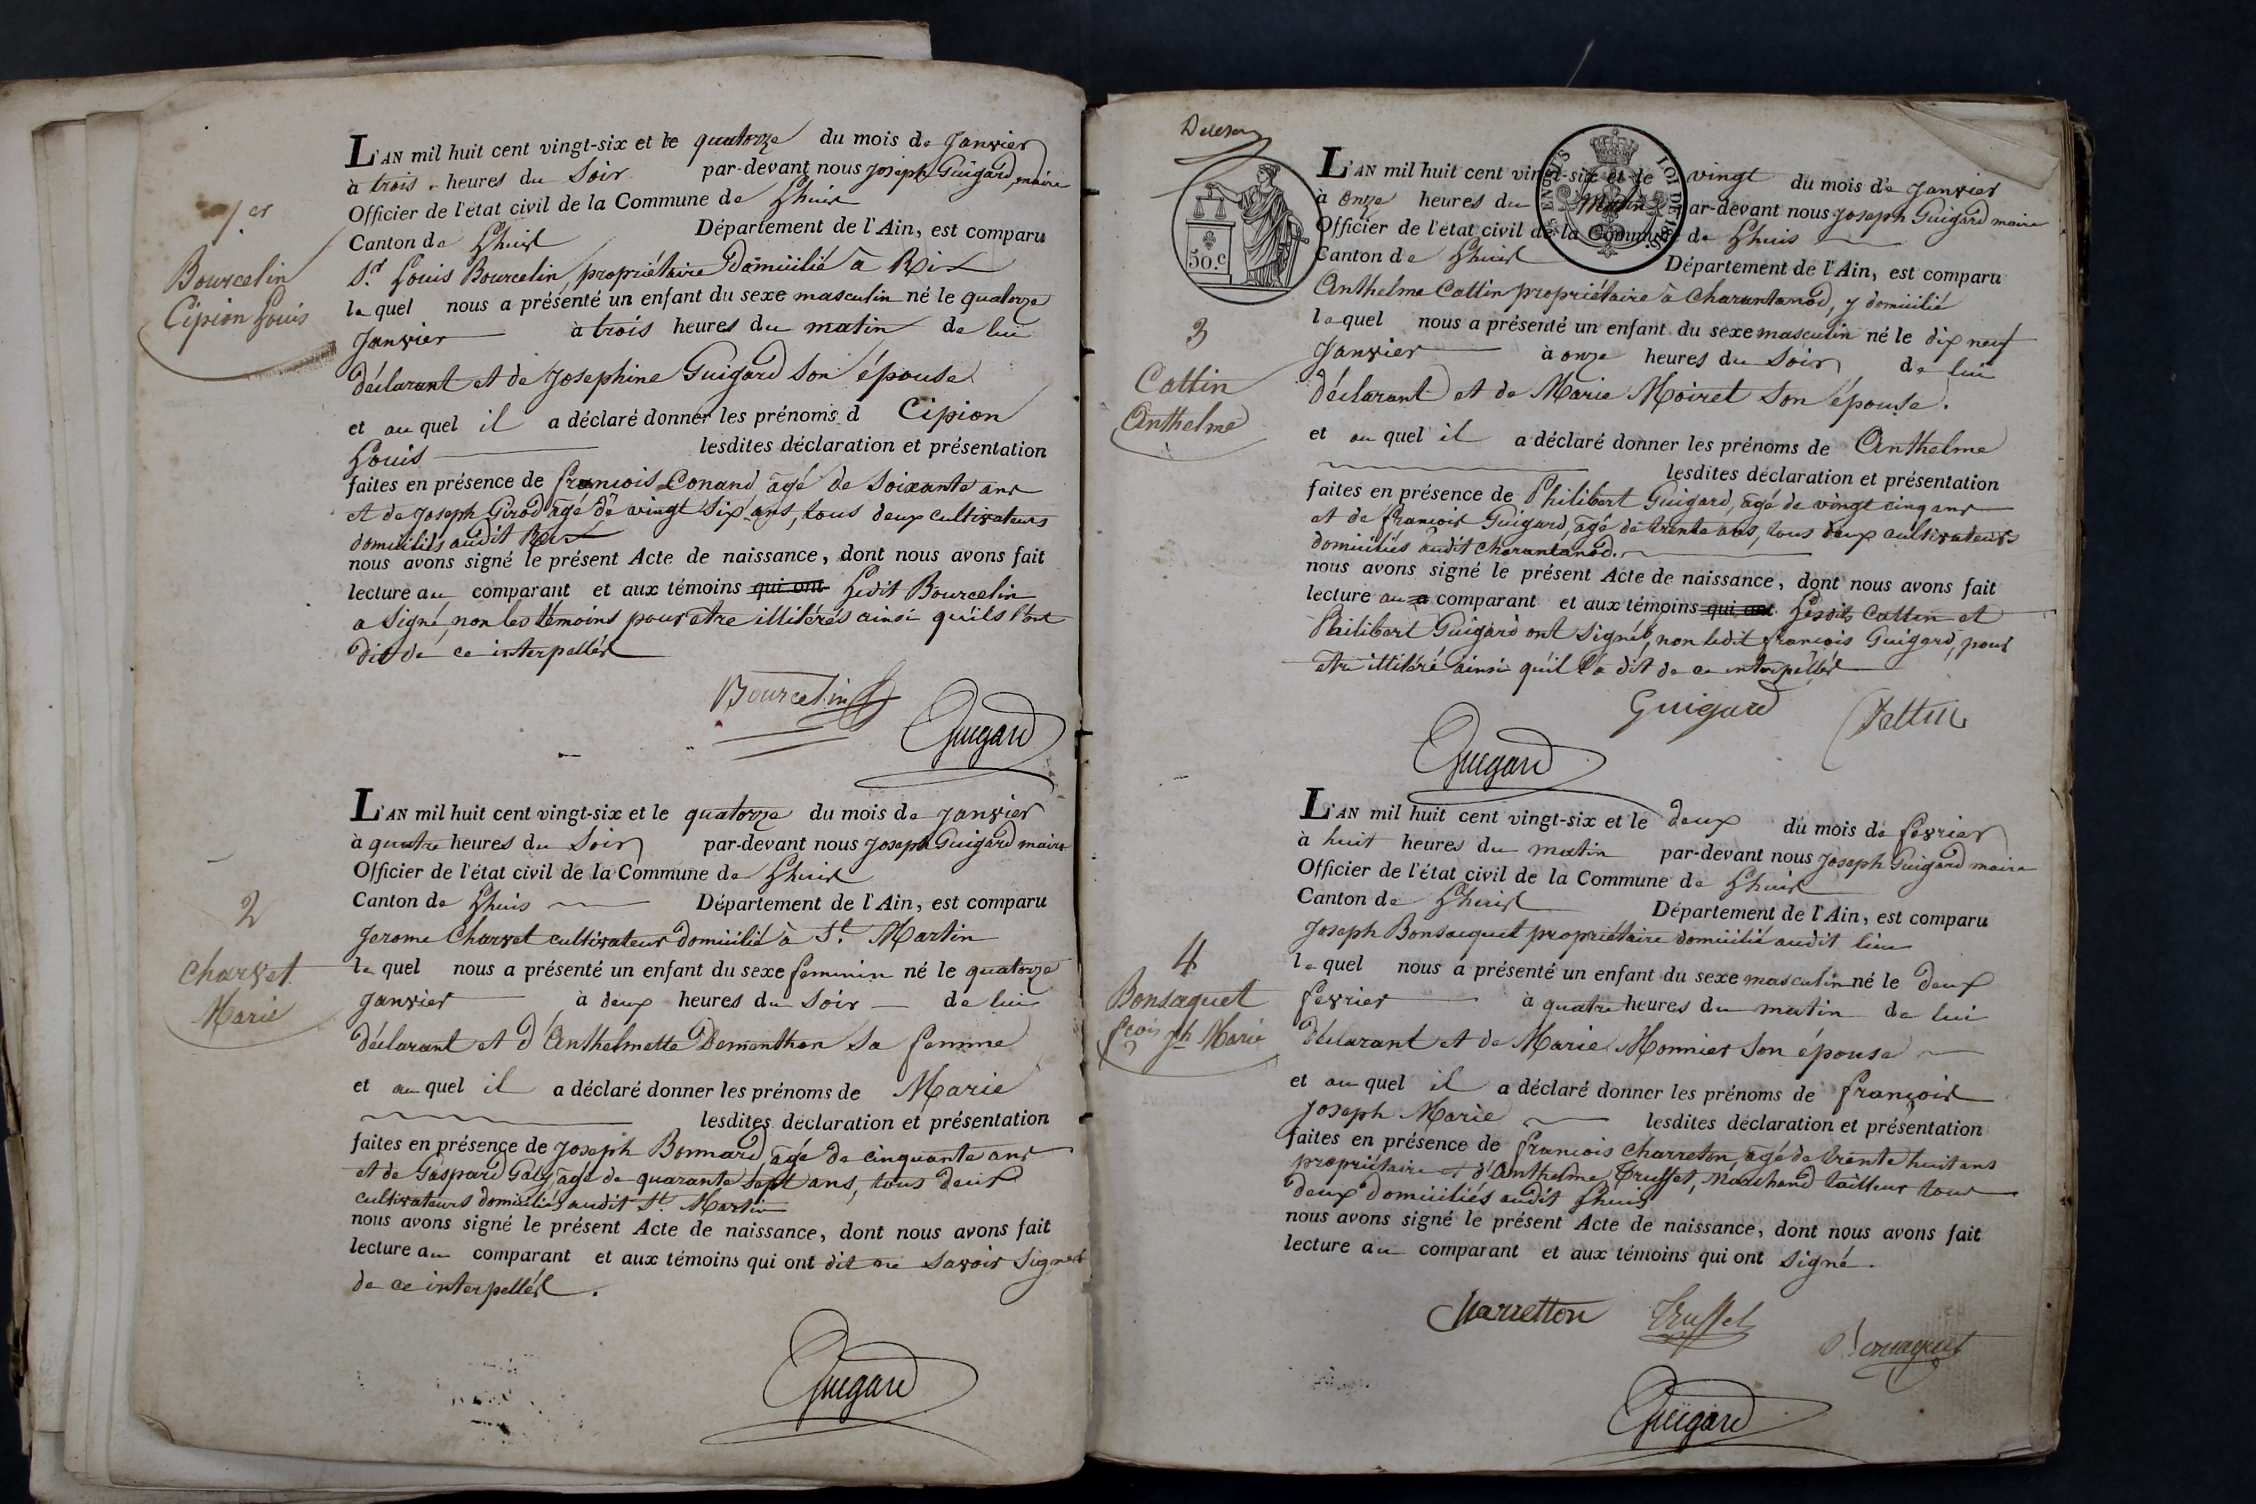 1er
Bourcelin
Cipion Louis
L'AN mil huit cent vingt-six et le quatorze du mois de Janvier
à trois heures du Soir par-devant nous Joseph Guigard, maire
Officier de l'état civil de la Commune de Lhuis
Canton de Lhuis Département de l'Ain, est comparu
Sr. Louis Bourcelin, propriétaire domicilié à Rix
lequel nous a présenté un enfant du sexe masculin né le quatorze
Janvier à trois heures du matin de lui
déclarant et de Josephine Guigard son épouse
et au quel il a déclaré donner les prénoms d Cipion
Louis lesdites déclaration et présentation
faites en présence de françois Conand, agé de Soixante ans
et de Joseph Girod agé de vingt Six ans, tous deux cultivateurs
domiciliés audit Rix
nous avons signé le présent Acte de naissance, dont nous avons fait
lecture au comparant et aux témoins qui ont Ledit Bourcelin
a Signé, non les témoins pour etre illitérés ainsi qu'ils l'ont
dit de ce interpellés
Bourcelin
Guigard
2
Charvet
Marie
L'AN mil huit cent vingt-six et le quatorze du mois de Janvier
à quatre heures du Soir par-devant nous Joseph Guigard maire
Officier de l'état civil de la Commune de Lhuis
Canton de Lhuis Département de l'Ain, est comparu
Jerome Charvet cultivateur domicilié à St. Martin
lequel nous a présenté un enfant du sexe feminin né le quatorze
Janvier à deux heures du Soir de lui
déclarant et d'Anthelmette Dementhon sa femme
et au quel il a déclaré donner les prénoms de Marie
lesdites déclaration et présentation
faites en présence de Joseph Bonnard, agé de cinquante ans
et de Gaspard Galy, agé de quarante sept ans, tous deux
cultivateurs domiciliés audit St. Martin
nous avons signé le présent Acte de naissance, dont nous avons fait
lecture au comparant et aux témoins qui ont dit ne savoir signer
de ce interpellés.
Guigard
50.c
LOI DE 1816
3
Cattin
Anthelme
L'AN mil huit cent vingt-six et le vingt du mois de Janvier
à onze heures du Matin par-devant nous Joseph Guigard maire
Officier de l'état civil de la Commune de Lhuis
Canton de Lhuis Département de l'Ain, est comparu
Anthelme Cattin propriétaire à Charantanod, y domicilié
lequel nous a présenté un enfant du sexe masculin né le dix neuf
Janvier à onze heures du Soir de lui
déclarant et de Marie Moiret son épouse.
et au quel il a déclaré donner les prénoms de Anthelme
lesdites déclaration et présentation
faites en présence de Philibert Guigard, agé de vingt cinq ans
et de françois Guigard, agé de trente ans, tous deux cultivateurs
domiciliés audit Charantanod.
nous avons signé le présent Acte de naissance, dont nous avons fait
lecture au comparant et aux témoins qui ont Lesdits Cattin et
Philibert Guigard ont signés, non ledit françois Guigard, pour
etre illitéré ainsi qu'il l'a dit de ce interpellés
Guigard Cattin
Guigard
4
Bonsaquet
fçois Jh Marie
L'AN mil huit cent vingt-six et le deux du mois de fevrier
à huit heures du matin par-devant nous Joseph Guigard maire
Officier de l'état civil de la Commune de Lhuis
Canton de Lhuis Département de l'Ain, est comparu
Joseph Bonsacquet propriétaire domicilié audit lieu
lequel nous a présenté un enfant du sexe masculin né le deux
fevrier à quatre heures du matin de lui
déclarant et de Marie Monnier son épouse
et au quel il a déclaré donner les prénoms de françois
Joseph Marie lesdites déclaration et présentation
faites en présence de françois Charreton, agé de trente huit ans
propriétaire et d'Anthelme Truffet, Marchand tailleur tous
deux domiciliés audit Lhuis
nous avons signé le présent Acte de naissance, dont nous avons fait
lecture au comparant et aux témoins qui ont signé.
Charretton Truffet Bonsaquet
Guigard